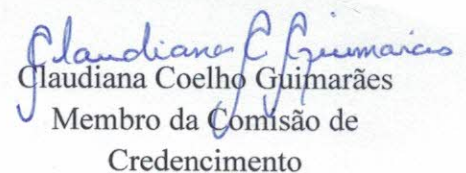 Claudiana C Guimarães
Claudiana Coelho Guimarães
Membro da Comisão de
Credencimento